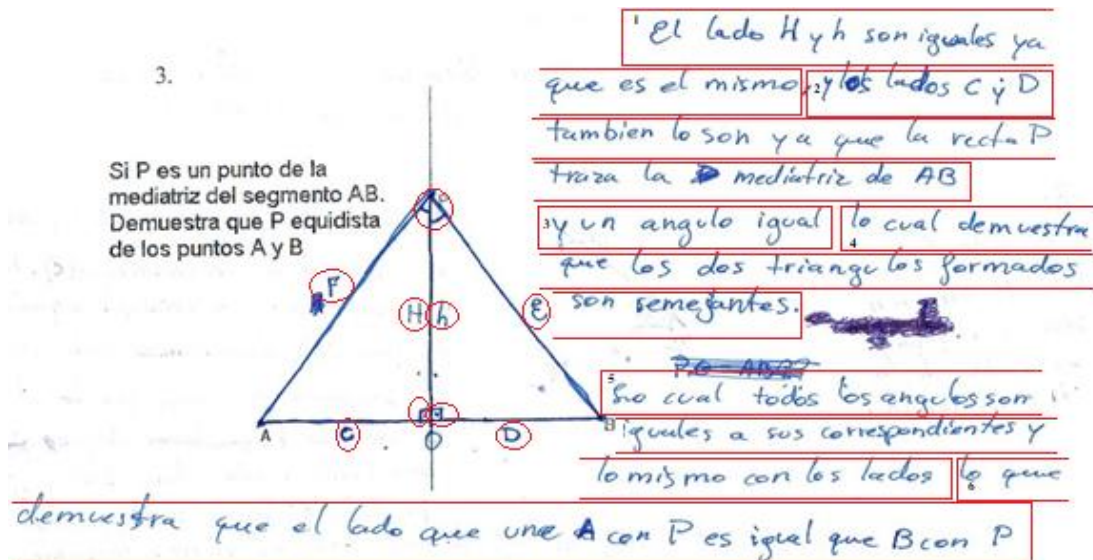 3.
Si P es un punto de la
mediatriz del segmento AB.
Demuestra que P equidista
de los puntos A y B
F
H h
E
A
C
O
D
B
1 El lado H y h son iguales ya
que es el mismo, 2 y los lados C y D
tambien lo son ya que la recta P
traza la mediatriz de AB
3 y un angulo igual 4 lo cual demuestra
que los dos triangulos formados
son semejantes.
5 Lo cual todos los angulos son
iguales a sus correspondientes y
lo mismo con los lados 6 lo que
demuestra que el lado que une A con P es igual que B con P